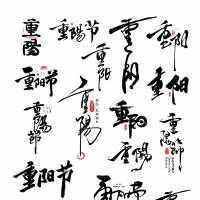 重陽
重阳节
重阳
重阳
重阳
重阳节
重阳
重陽
重陽節
重阳
重陽
重陽節
重陽
重阳节
重阳节
重阳